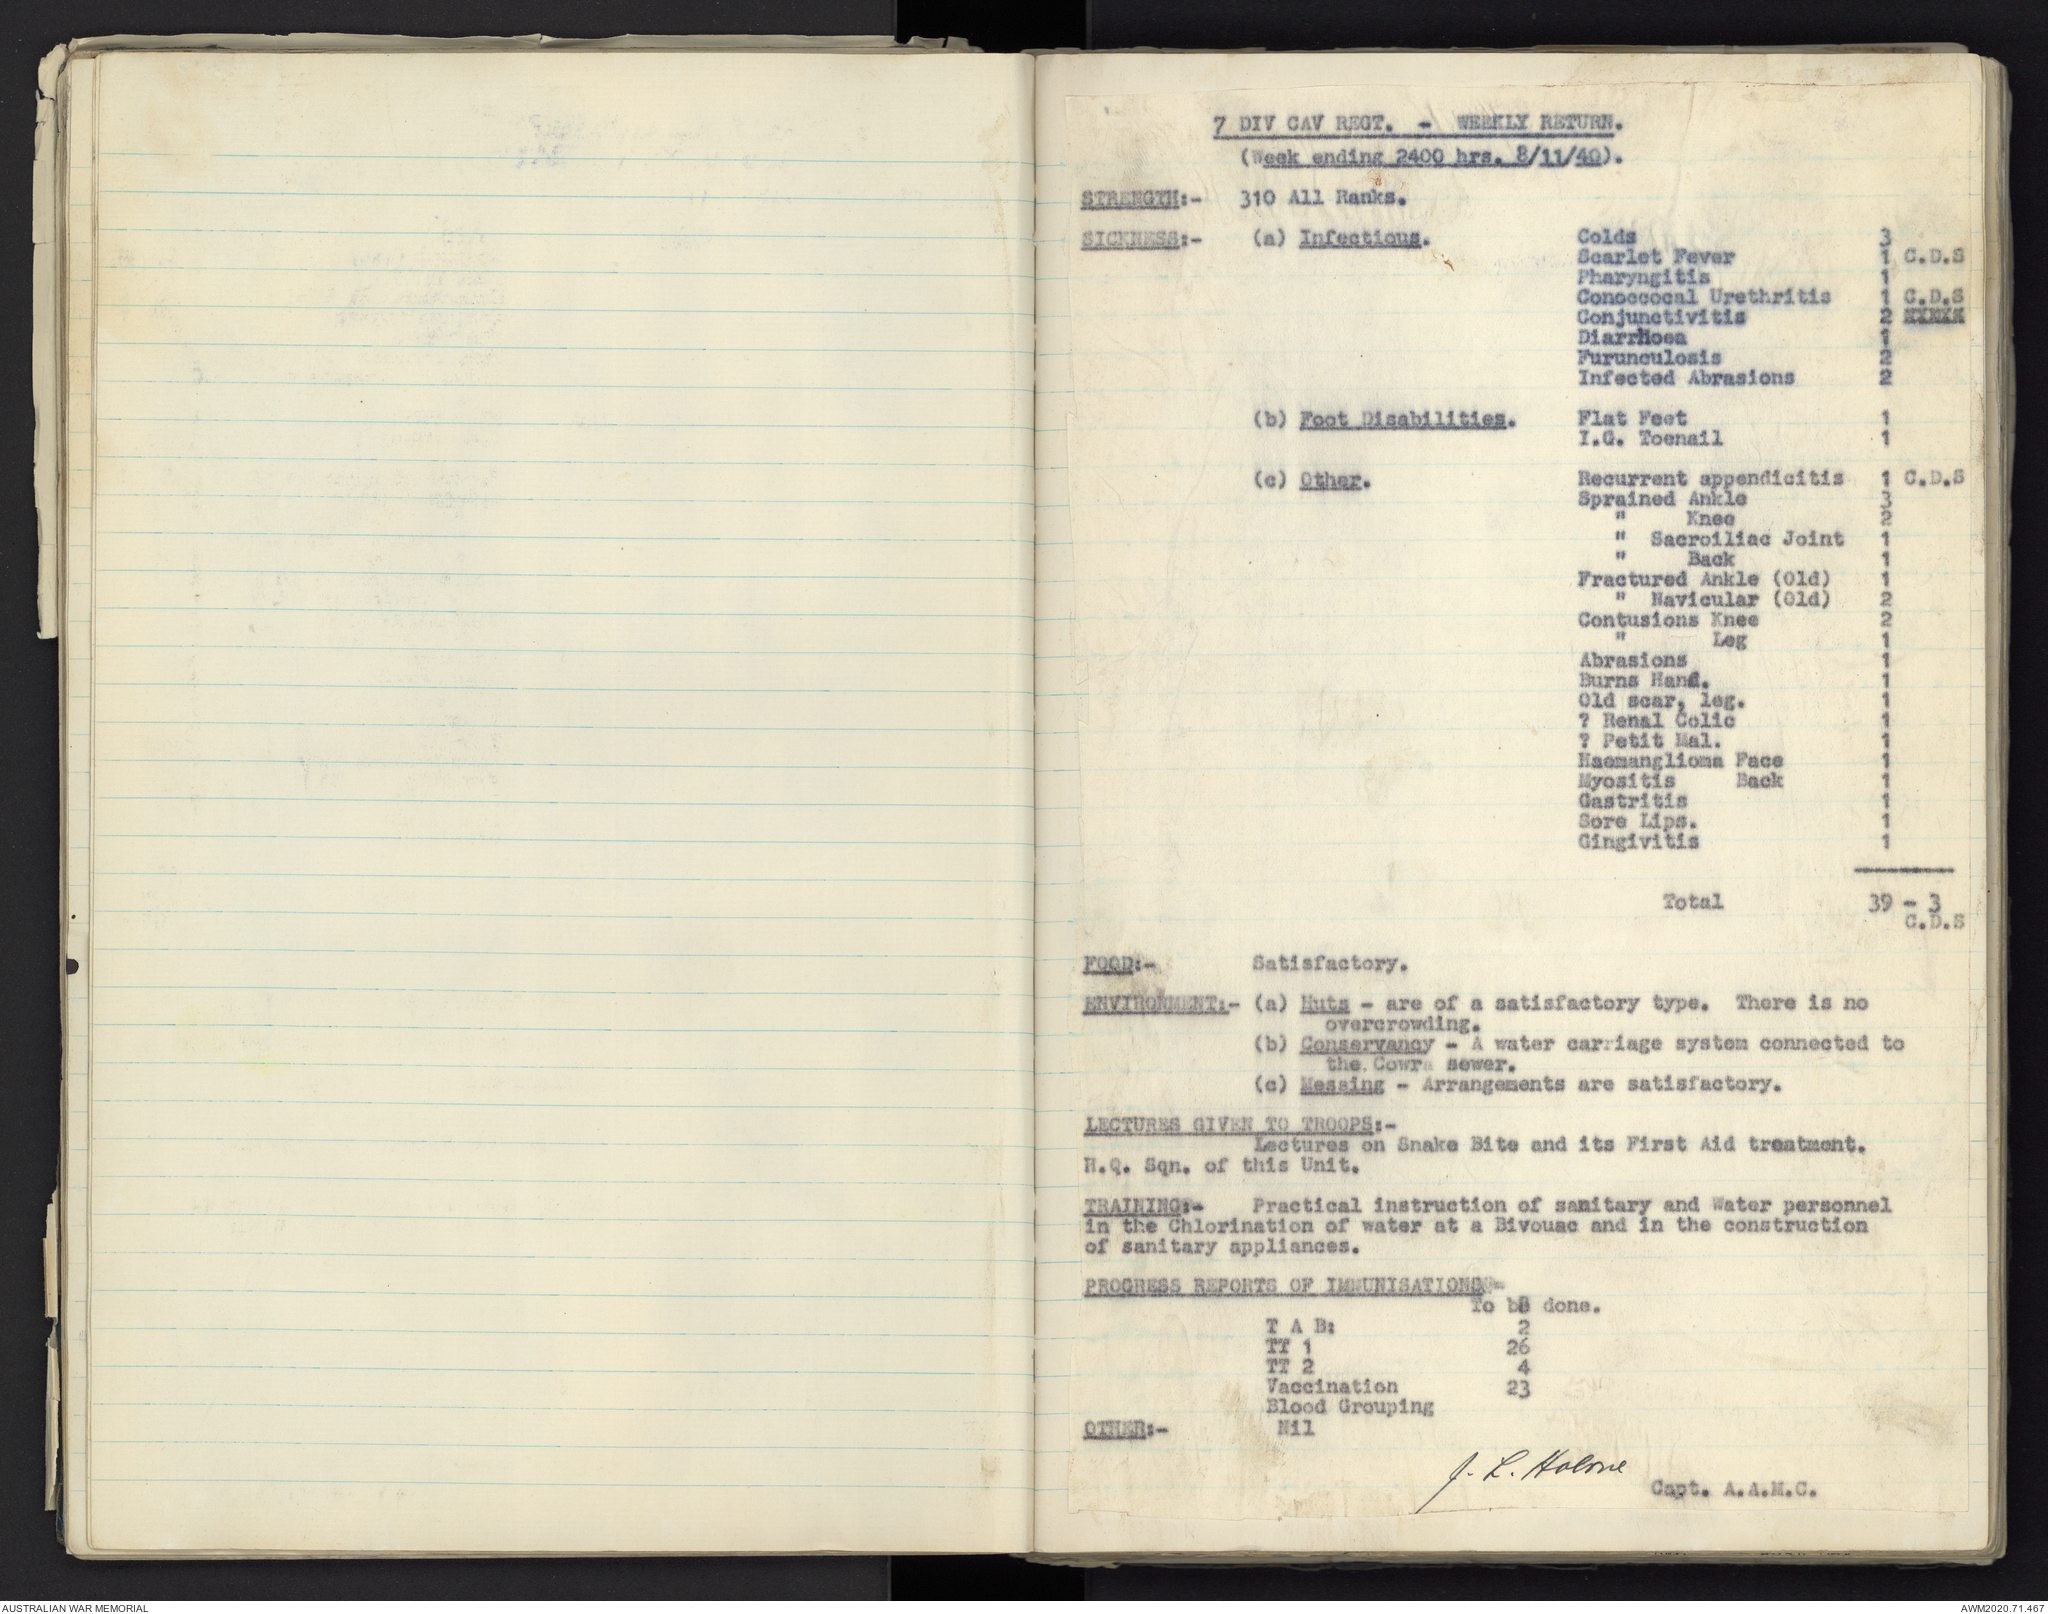 7 DIV CAV REGT. - WEEKLY RETURN.
(Week ending 2400 hrs. 8/11/40).
STRENGTH:- 310 All Ranks.
SICKNESS:- (a) Infectious. Colds 3
Scarlet Fever 1 C.D.S
Pharyngitis 1
Conoccocal Urethritis 1 C.D.S
Conjunctivitis 2
Diarrhoea 1
Furunculosis 2
Infected Abrasions 2
(b) Foot Disabilities. Flat Feet 1
I.G. Toenail 1
(c) Other. Recurrent appendicitis 1 C.D.S
Sprained Ankle 3
" Knee 2
" Sacroiliac Joint 1
" Back 1
Fractured Ankle (Old) 1
" Navicular (Old) 2
Contusions Knee 2
" Leg 1
Abrasions 1
Burns Hand. 1
Old scar, leg. 1
? Renal Colic 1
? Petit Mal. 1
Haemanglioma Face 1
Myositis Back 1
Gastritis 1
Sore Lips. 1
Gingivitis 1
Total 39 - 3
C.D.S
FOOD:- Satisfactory.
ENVIRONMENT:- (a) Huts - are of a satisfactory type. There is no
overcrowding.
(b) Conservancy - A water carriage system connected to
the Cowra sewer.
(c) Messing - Arrangements are satisfactory.
LECTURES GIVEN TO TROOPS:-
Lectures on Snake Bite and its First Aid treatment.
H.Q. Sqn. of this Unit.
TRAINING:- Practical instruction of sanitary and Water personnel
in the Chlorination of water at a Bivouac and in the construction
of sanitary appliances.
PROGRESS REPORTS OF IMMUNISATIONS:-
To be done.
T A B: 2
TT 1 26
TT 2 4
Vaccination 23
Blood Grouping
OTHER:- Nil
J. L. Holme
Capt. A.A.M.C.
AUSTRALIAN WAR MEMORIAL
AWM2020.71.467